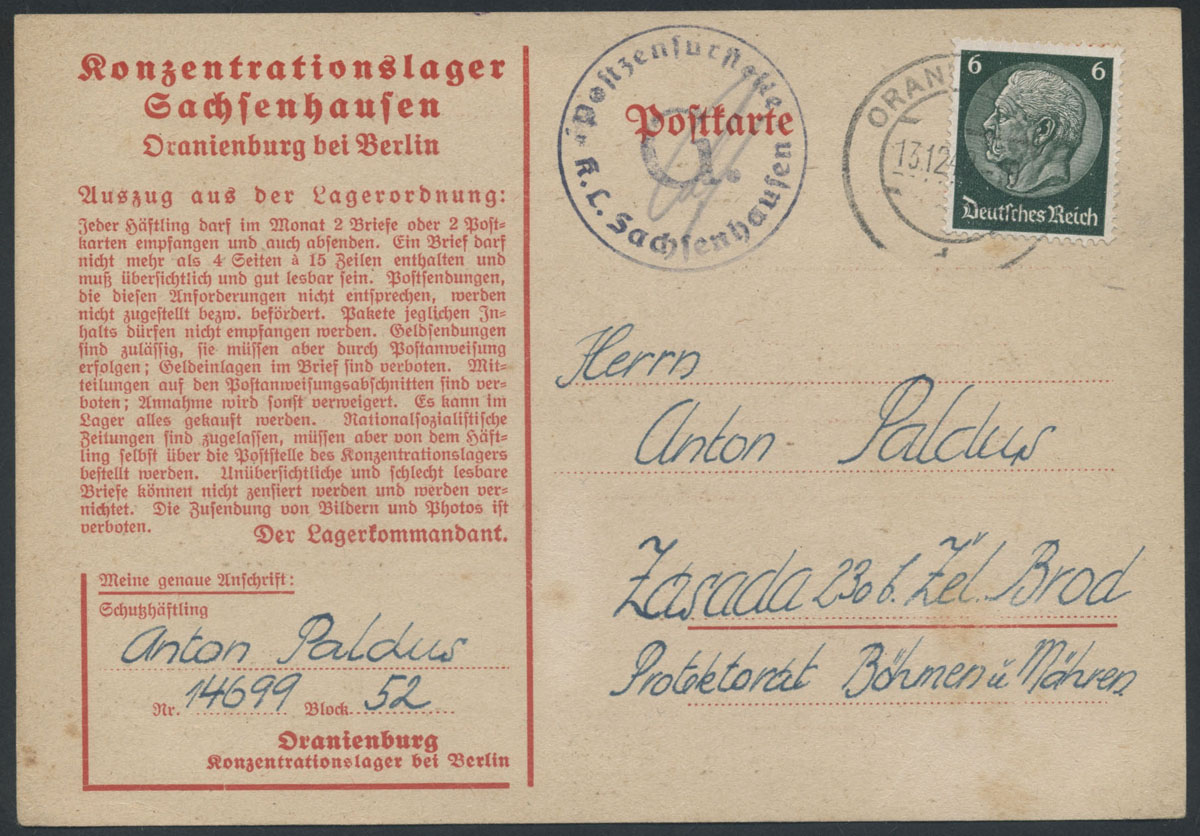 Konzentrationslager
Sachsenhausen
Oranienburg bei Berlin
Auszug aus der Lagerordnung:
Jeder Häftling darf im Monat 2 Briefe oder 2 Post-
karten empfangen und auch absenden. Ein Brief darf
nicht mehr als 4 Seiten à 15 Zeilen enthalten und
muß übersichtlich und gut lesbar sein. Postsendungen,
die diesen Anforderungen nicht entsprechen, werden
nicht zugestellt bezw. befördert. Pakete jeglichen In-
halts dürfen nicht empfangen werden. Geldsendungen
sind zulässig, sie müssen aber durch Postanweisung
erfolgen; Geldeinlagen im Brief sind verboten. Mit-
teilungen auf den Postanweisungsabschnitten sind ver-
boten; Annahme wird sonst verweigert. Es kann im
Lager alles gekauft werden. Nationalsozialistische
Zeitungen sind zugelassen, müssen aber von dem Häft-
ling selbst über die Poststelle des Konzentrationslagers
bestellt werden. Unübersichtliche und schlecht lesbare
Briefe können nicht zensiert werden und werden ver-
nichtet. Die Zusendung von Bildern und Photos ist
verboten.
Der Lagerkommandant.
Meine genaue Anschrift:
Schutzhäftling
Anton Paldus
Nr. 14699 Block 52
Oranienburg
Konzentrationslager bei Berlin
Postzensurstelle
K.L. Sachsenhausen
Postkarte
ORANI
13.12.4
6 6
Deutsches Reich
Herrn
Anton Paldus
Zásada 230 b. Žel. Brod
Protektorat Böhmen u Mähren